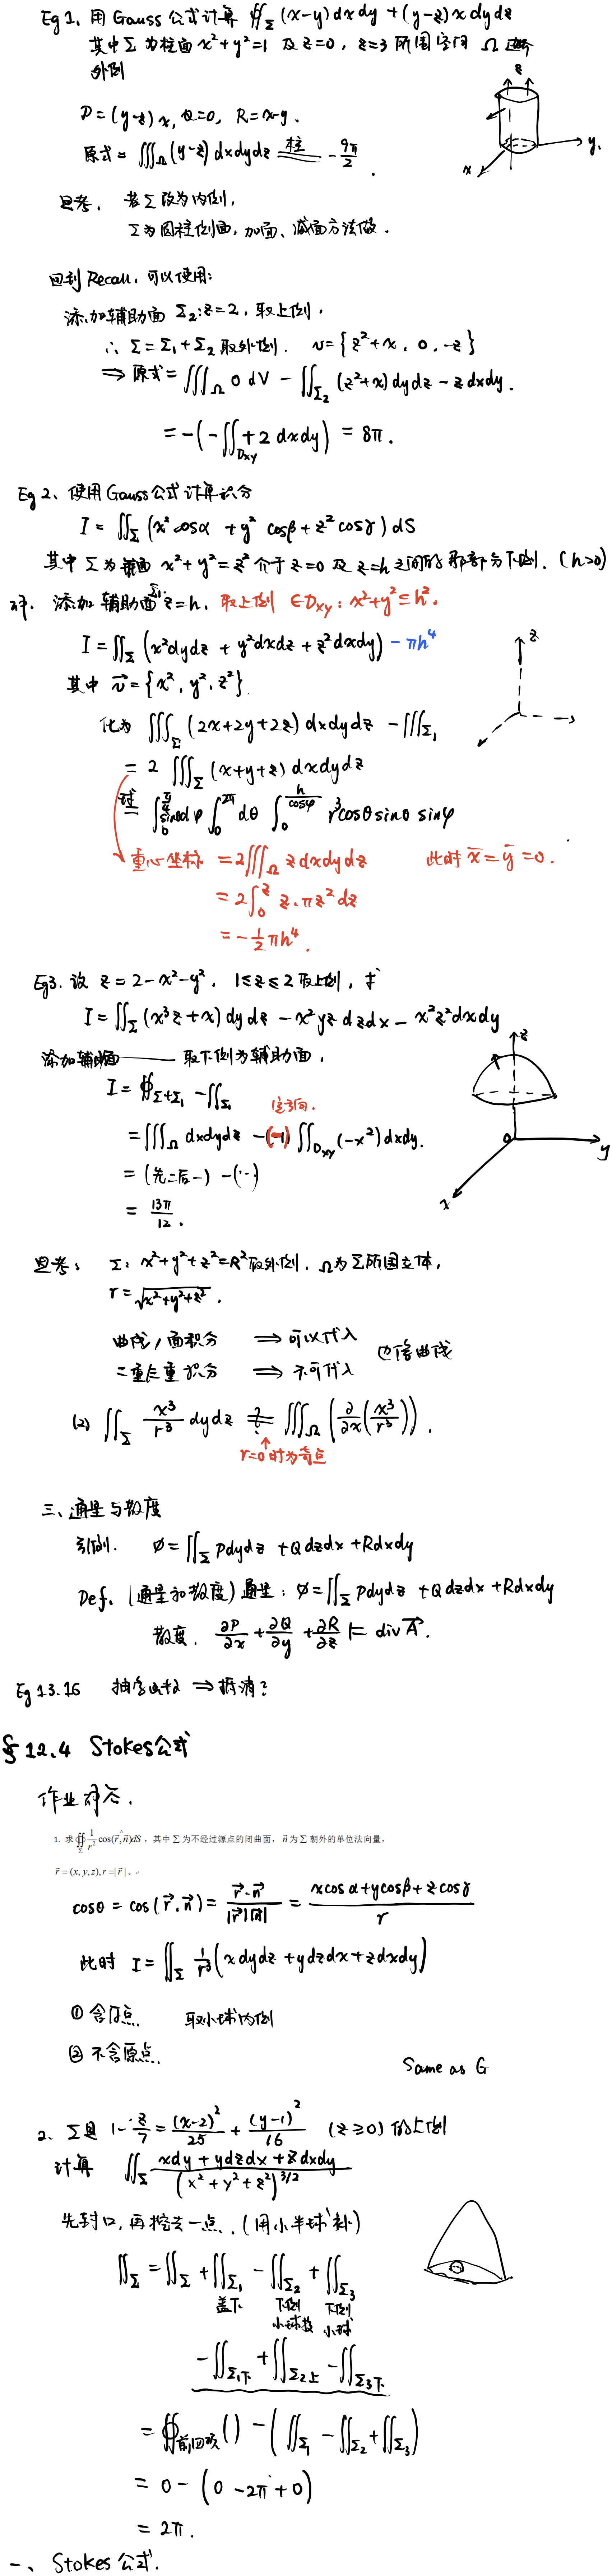 Eg 1. 用 Gauss 公式计算 ∯_Σ (x-y)dxdy + (y-z)x dydz
其中 Σ 为柱面 x²+y²=1 及 z=0, z=3 所围空间 Ω
外侧
P=(y-z)x, Q=0, R=x-y.
原式= ∭_Ω (y-z) dxdydz 柱= -9π/2.
思考. 若Σ改为内侧,
Σ为圆柱侧面, 加面、减面方法做.
z
x
y.
回到 Recall, 可以使用:
添加辅助面 Σ₂: z=2, 取上侧.
∴ Σ=Σ₁+Σ₂ 取外侧. v={z²+x, 0, -z}
⇒ 原式= ∭_Ω 0 dV - ∬_Σ₂ (z²+x)dydz - zdxdy.
= -(-∬_Dxy +2 dxdy) = 8π.
Eg 2. 使用 Gauss 公式计算积分
I = ∬_Σ (x² cosα + y² cosβ + z² cosγ) dS
其中 Σ 为锥面 x²+y²=z² 介于 z=0 及 z=h 之间的那部分下侧. (h>0)
添加辅助面 Σ₁: z=h. 取上侧 ∈Dxy: x²+y²≤h².
I = ∬_Σ (x²dydz + y²dxdz + z²dxdy) - πh⁴
其中 v⃗={x², y², z²}.
化为 ∭_Σ (2x+2y+2z) dxdydz - ∭_Σ₁
= 2 ∭_Σ (x+y+z) dxdydz
球= ∫₀^{π/4} dφ ∫₀^{2π} dθ ∫₀^{h/cosφ} r³cosθ sinθ sinφ
重心坐标 = 2∭_Ω z dxdydz 此时 x̄=ȳ=0.
= 2∫₀^z z·πz² dz
= -1/2 πh⁴.
z
Eg3. 设 z=2-x²-y², 1≤z≤2 取上侧, 求
I = ∬_Σ (x³z+x) dydz - x²yz dzdx - x²z²dxdy
添加辅助面 —— 取下侧为辅助面,
I = ∯_Σ+Σ₁ - ∬_Σ₁
注意方向.
= ∭_Ω dxdydz - (-1) ∬_Dxy (-x²) dxdy.
= (先二后一) - (…)
= 13π/12.
z
0
y
x
思考: Σ: x²+y²+z²=R² 取外侧. Ω为Σ所围立体,
r=√(x²+y²+z²).
曲线/面积分 ⇒ 可以代入
二重三重积分 ⇒ 不可代入
(2) ∬_Σ x³/r³ dydz ?= ∭_Ω (∂/∂x (x³/r³)).
r=0时为奇点
三、通量与散度
引例. Φ=∬_Σ Pdydz + Qdzdx + Rdxdy
Def. (通量和散度) 通量: Φ=∬_Σ Pdydz + Qdzdx + Rdxdy
散度. ∂P/∂x + ∂Q/∂y + ∂R/∂z |= div A⃗.
Eg 13.16 ⇒ 抵消?
§ 12.4 Stokes公式
作业
1. 求∯_Σ 1/r² cos(r⃗,n⃗)dS，其中 Σ 为不经过源点的闭曲面， n⃗ 为 Σ 朝外的单位法向量，
r⃗=(x,y,z),r=|r⃗|。
cosθ = cos(r⃗,n⃗) = r⃗·n⃗/|r⃗||n⃗| = (xcosα+ycosβ+zcosγ)/r
此时 I=∬_Σ 1/r³ (xdydz + ydzdx + zdxdy)
① 含原点 取小球内侧
② 不含原点. Same as G
2. Σ是 1-z/7 = (x-2)²/25 + (y-1)²/16 (z≥0) 的上侧
计算 ∬_Σ (xdy + ydzdx + zdxdy)/(x²+y²+z²)^{3/2}
先封口, 再挖去一点.. (用小半球补)
∬_Σ = ∬_Σ + ∬_Σ₁ - ∬_Σ₂ + ∬_Σ₃
盖下 下侧 下侧
小球
-∬_Σ₁下 + ∬_Σ₂上 - ∬_Σ₃下
= ∯_前四项 ( ) - (∬_Σ₁ - ∬_Σ₂ + ∬_Σ₃)
= 0 - (0 - 2π + 0)
= 2π.
一、Stokes 公式.